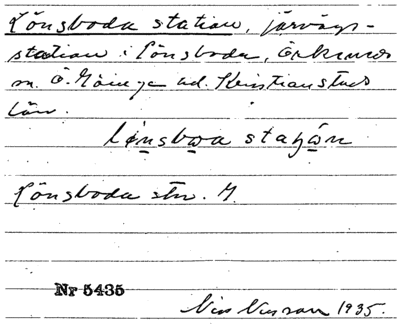 Lönsboda station, järnvägs-
station i Lönsboda, Örkeneds
sn. Ö. Göinge hd. Kristianstads
län.
lø̱nsbo̱a staʃo̱n
Lönsboda stn. J.
Nr 5435
1935.